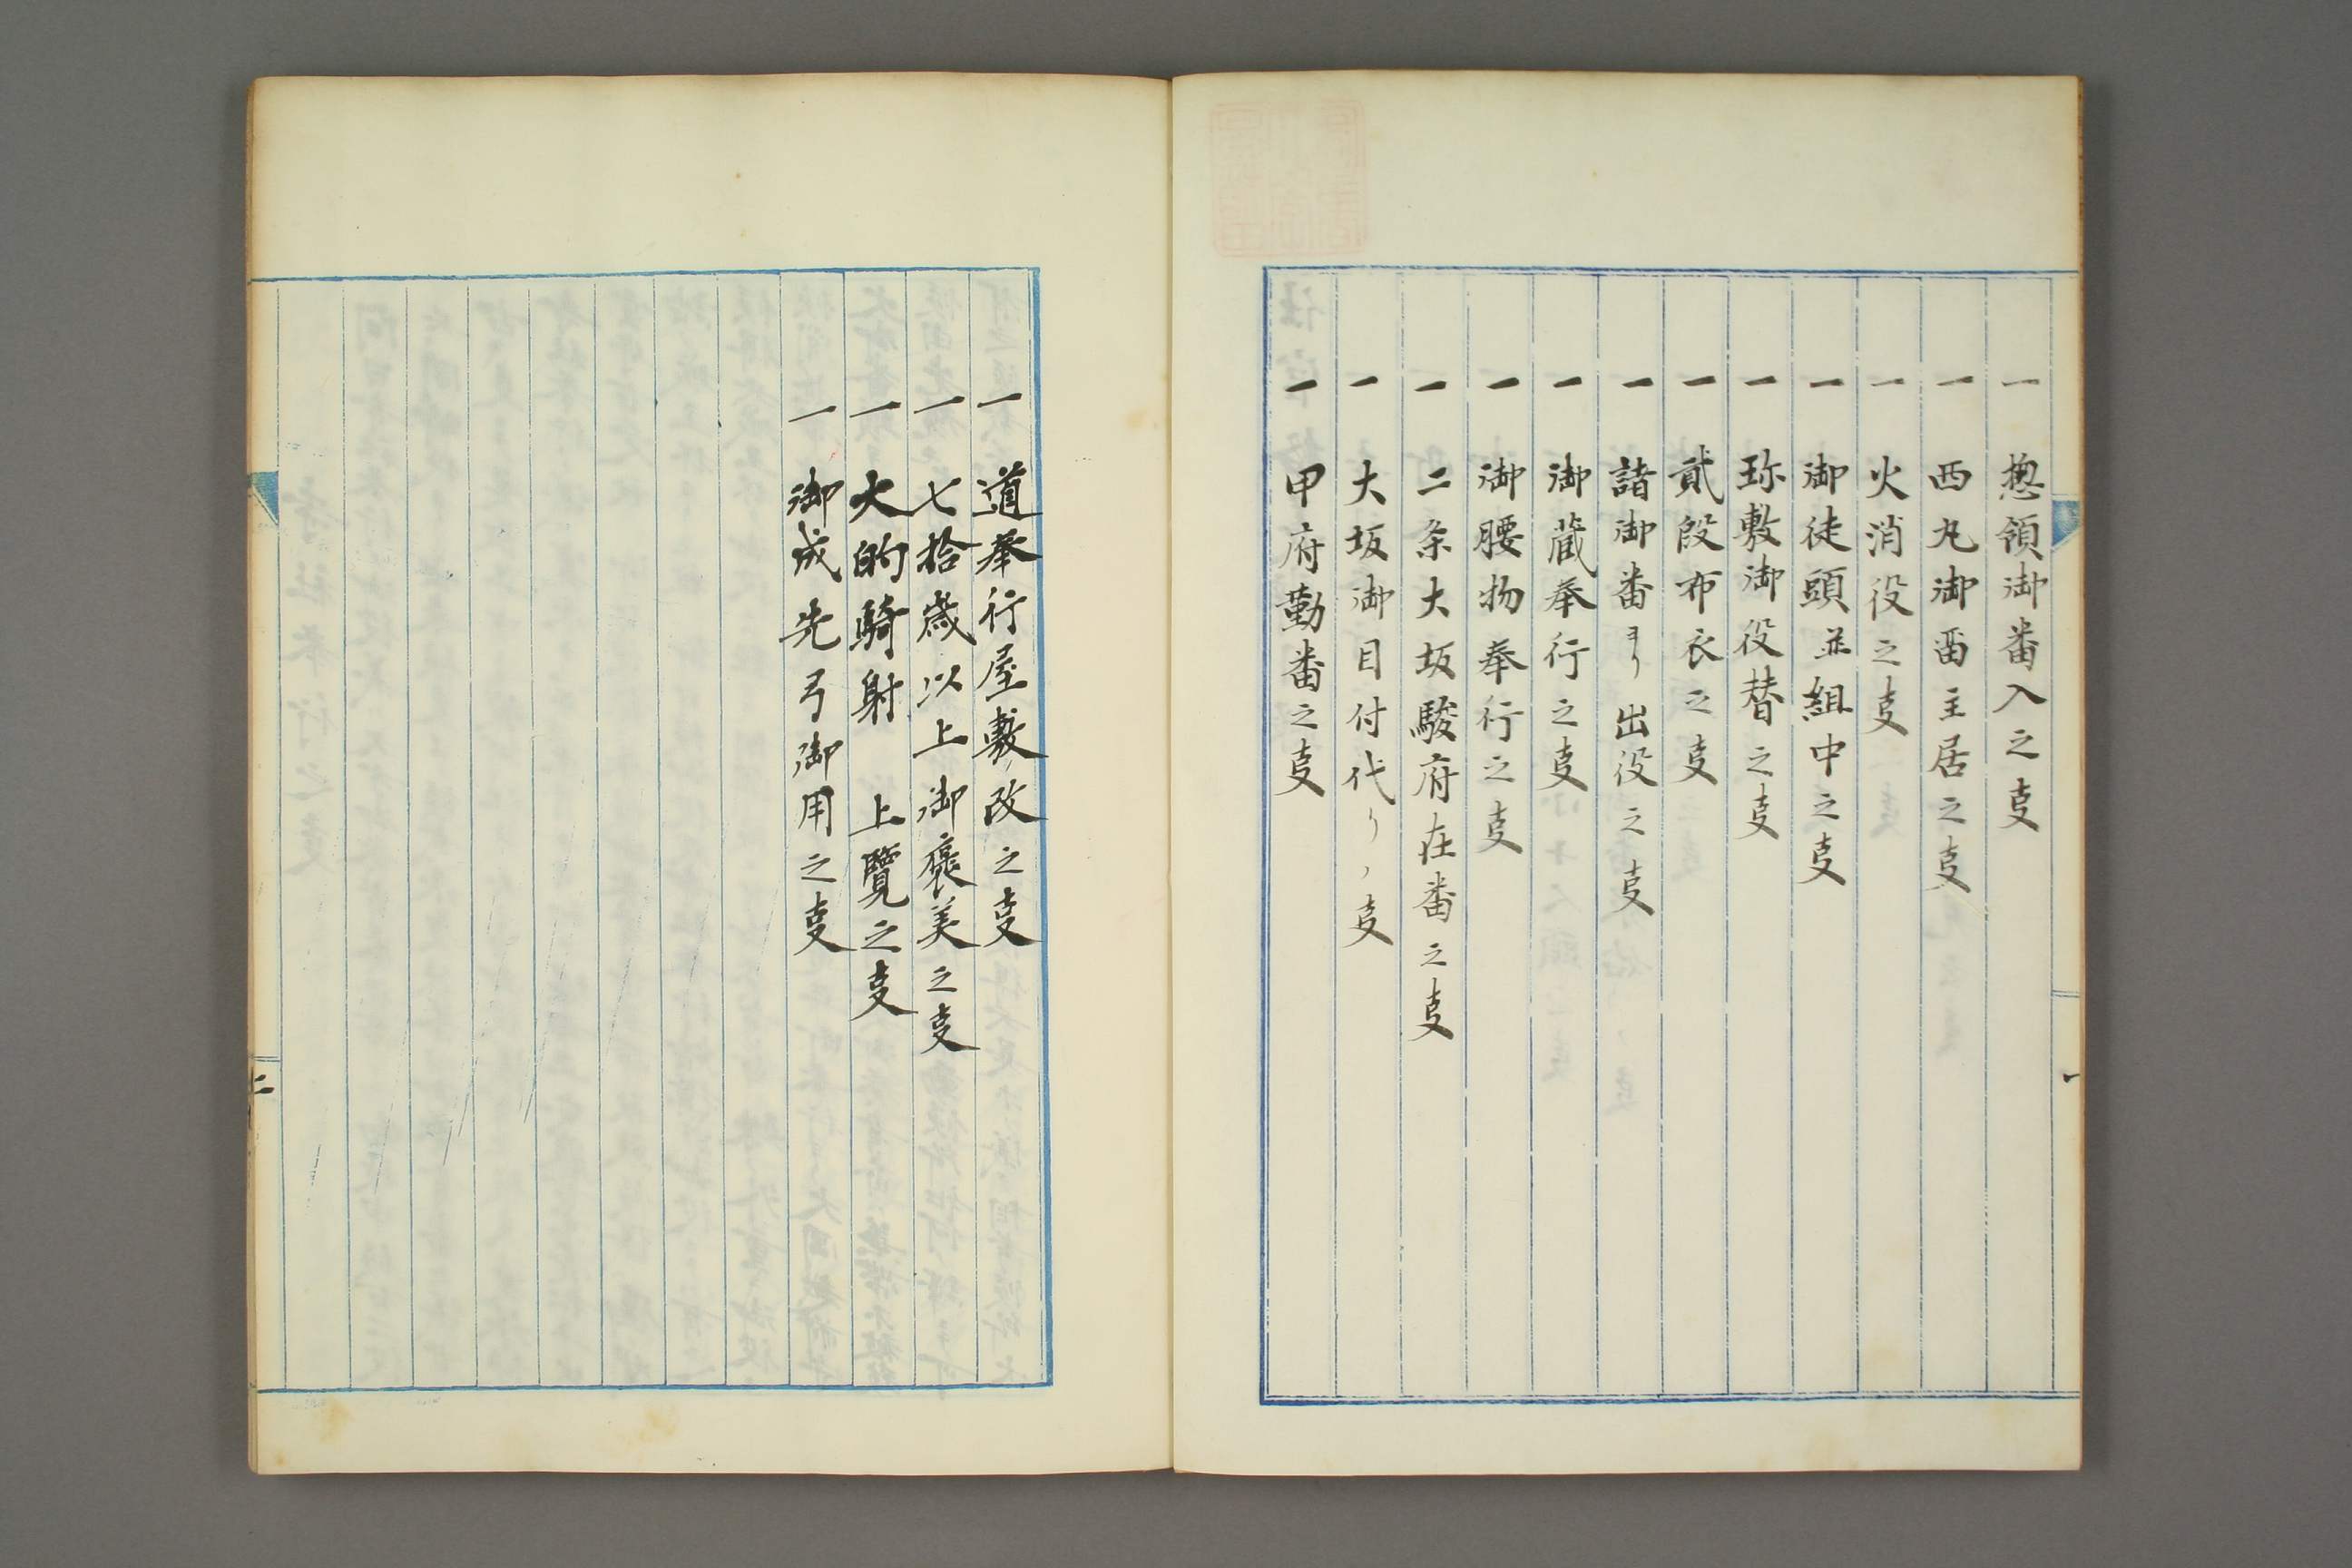 一 惣領御番入之叓
一 西丸御畨主居之叓
一 火消役之叓
一 御徒頭並組中之叓
一 珎敷御役替之叓
一 貳段布衣之叓
一 諸御番ヨリ出役之叓
一 御蔵奉行之叓
一 御腰物奉行之叓
一 二条大坂駿府在番之叓
一 大坂御目付代リノ叓
一 甲府勤番之叓
一 道奉行屋敷改之叓
一 七拾歳以上御褒美之叓
一 大的騎射 上覽之叓
一 御成先弓御用之叓